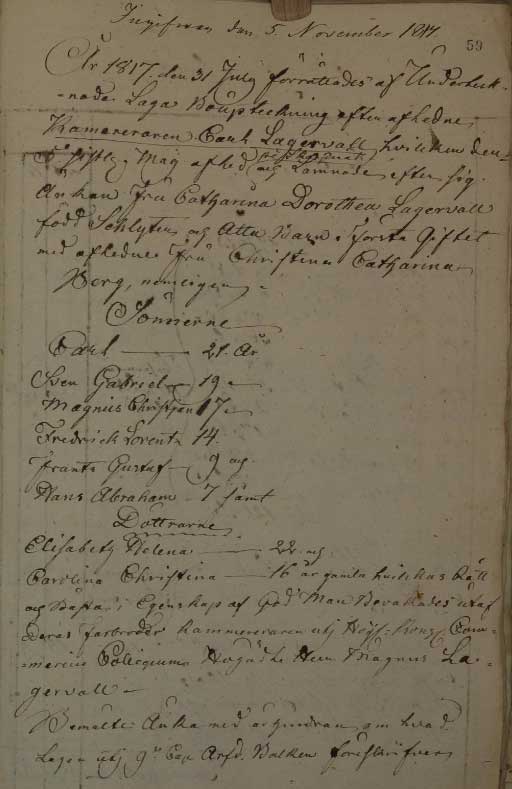 Ingifven den 5 November 1817.
59
År 1817. den 31 July förrättades af Underteck-
-nade Laga Bouptekning efter aflidne
Kamereraren Carl Lagervall hvilcken den
5 sistl. May afled och Lämnade efter sig
Änkan Fru Catharina Dorothea Lagervall
född Schlyter, och Åtta Barn i första Giftet
med aflidne Fru Christina Catharina
Berg, nemligen
Sönerne
Carl — 21. År
Sven Gabriel — 19
Magnus Christian 17
Fredrick Lorentz 14.
Frantz Gustaf — 9 och
Hans Abraham — 7 samt
Döttrarne
Elisabeth Helena — 22. och
Carolina Christina — 16 år gamla hvilkas Rätt
och Bästa i Egenskap af God Man Bevakades utaf
Deras farbroder Kammereraren utj Kongl. Com-
-mercie Collegium Herr Magnus La-
gervall —
Bemälte Änka med om hvad
Lagen utj 9 Cap Ärfd. Balken föreskrifver